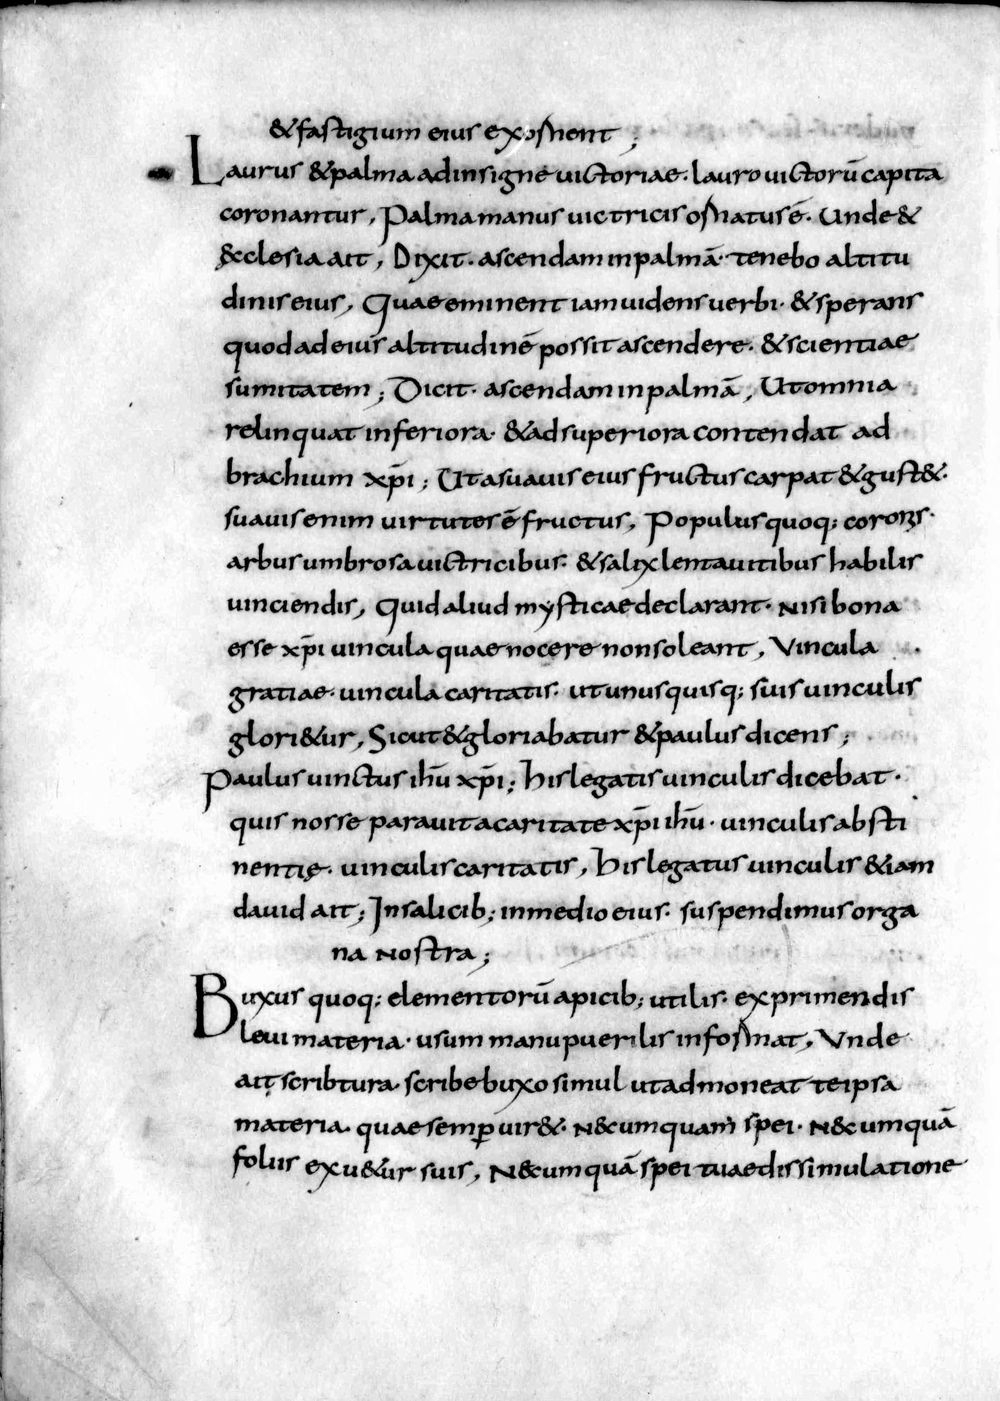 &fastigium eius exornent;
Laurus &palma adinsigne uictoriae. lauro uictorū capita
coronantur, Palma manus uictricis ornatus ē. Unde &
&cclesia ait, Dixit. ascendam inpalmā. tenebo altitu
dinis eius, Quae eminentiam uidens uerbi. & sperans
quod ad eius altitudinē possit ascendere. & scientiae
sumitatem; Dicit. ascendam inpalmā, Ut omnia
relinquat inferiora. & ad superiora contendat ad
brachium xp̄i; Ut asuauis eius fructus carpat & gust&.
suauis enim uirtutes ē fructus, Populus quoq; coronis.
arbus umbrosa uictricibus. & salix lenta uitibus habilis
uinciendis, Quid aliud mysticae declarant. nisi bona
esse xp̄i uincula quae nocere non soleant, Vincula
gratiae. uincula caritatis. ut unusquisq; suis uinculis
glori&ur, Sicut & gloriabatur & paulus dicens;
Paulus uinctus ihū xp̄i; his legatis uinculis dicebat.
quis nosse parauit acaritate xp̄i ihū. uinculis absti
nentię. uinculis caritatis, his legatus uinculis &iam
dauid ait; Insalicib; inmedio eius. suspendimus orga
na nostra;
Buxus quoq; elementorū apicib; utilis. exprimendis
leui materia. usum manu puerilis informat, Vnde
ait scribtura. scribe buxo simul ut admoneat te ipsa
materia. quae semꝑ uir&. n&cumquam spei. n&cumquā
foliis exu&ur suis, N&cumquā spei tuae dissimulatione